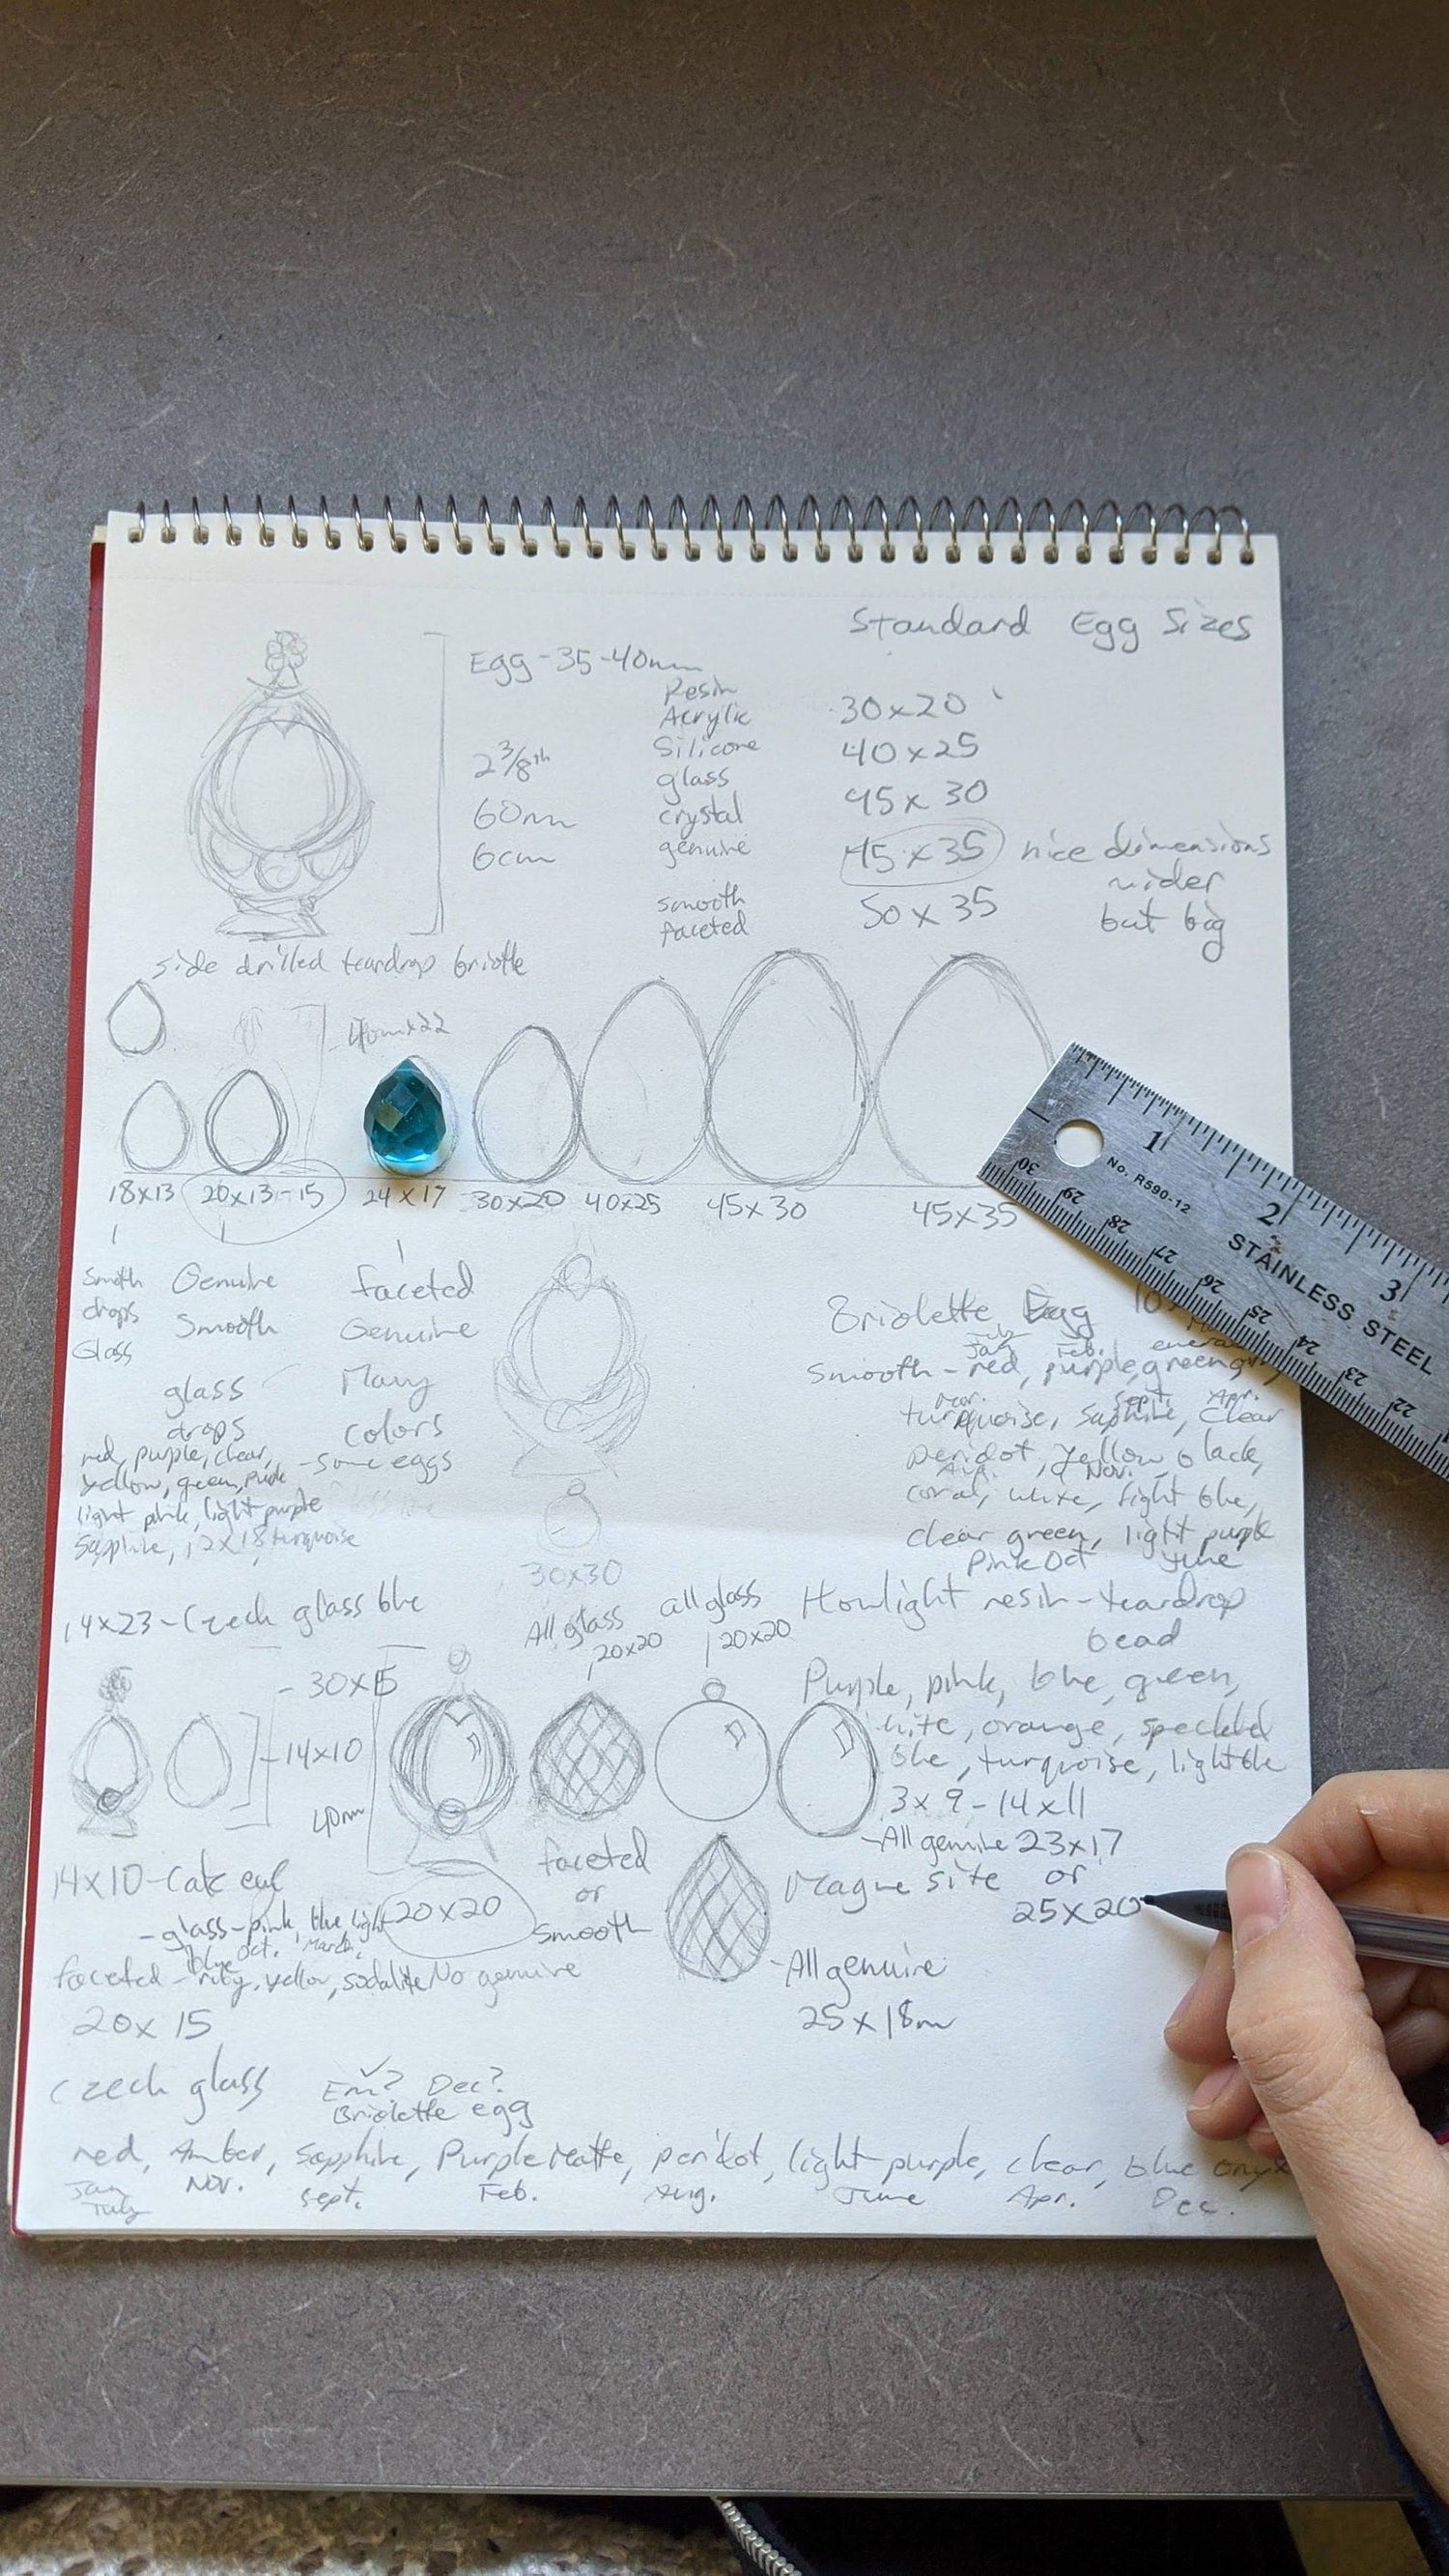 Standard Egg Sizes
Egg - 35-40mm
Resin
Acrylic
Silicone
glass
crystal
genuine
smooth
faceted
2 3/8th
60mm
6cm
30x20
40x25
45x30
45x35 nice dimensions
wider
but big
50x35
side drilled teardrop
18x13
20x13-15
24x17
30x20
40x25
45x30
45x35
Smoth
drops
Glass
Genuine
Smooth
glass
drops
red, purple, clear,
yellow, green,
light pink, light purple
Sapphire, 12x18 turquoise
faceted
Genuine
Many
colors
- some eggs
1
2
3
No. R590-12
STAINLESS STEEL
30 29 28 27 26 25 24 23 22
Briolette Egg
July
Jan Feb.
Smooth - red, purple, green,
Mar. Sept. Apr.
Clear
peridot, yellow black,
Aug. Nov.
coral, white, light blue,
clear green, light purple
Pink Oct June
30x30
14x23 - Czech glass blue
All glass
20x20
all glass
20x20
Howlight resin - teardrop
bead
Purple, pink, blue, green,
orange, speckled
blue, turquoise, light ble
3x9 - 14x11
- All genuine 23x17
or
25x20
Magne site
- 30x15
- 14x10
40mm
20x20
faceted
or
smooth
- All genuine
25x18m
14x10 -
- glass - pink, blue, light
blue Oct. March,
faceted - ruby, yellow, sodalite No genuine
20x15
Czech glass
Em? Dec?
Briolette egg
red, Amber, Sapphire, Purple Matte, peridot, light purple, clear, blue onyx
Jan Nov. Sept. Feb. Aug. June Apr. Dec.
July